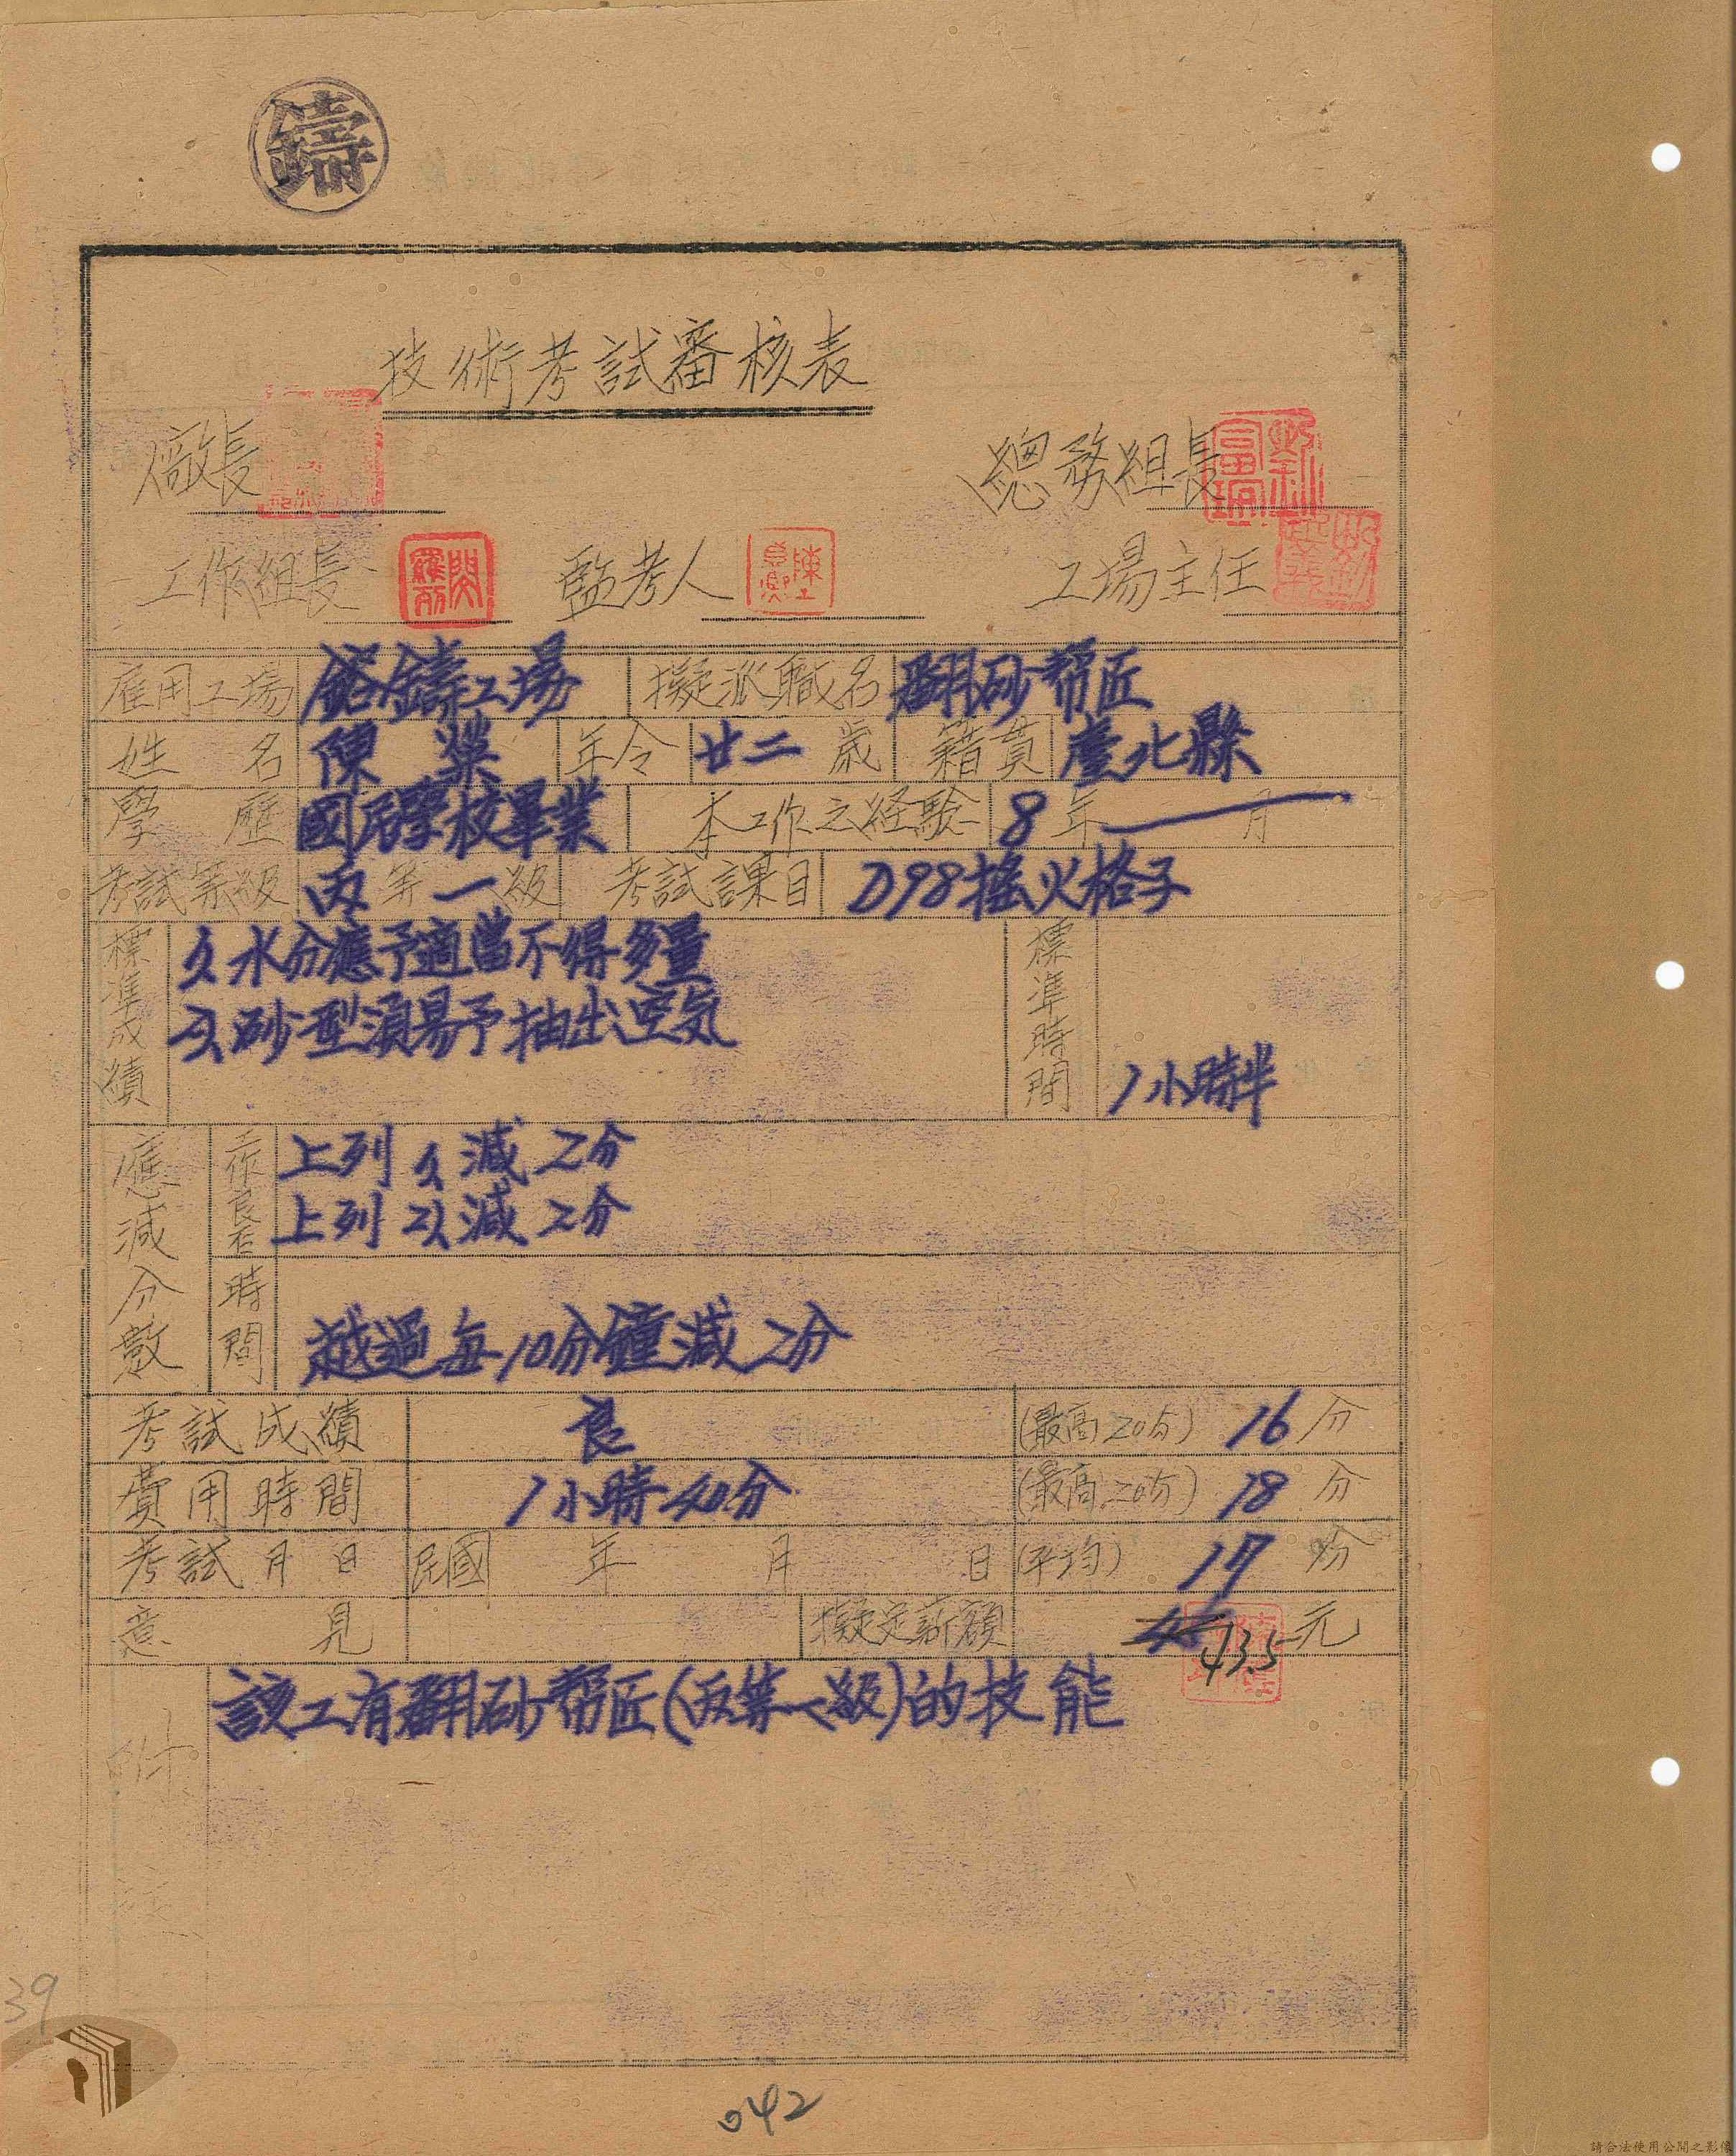 鑄
技術考試審核表
廠長 總務組長
工作組長 監考人 工場主任
雇用工場 鎔鑄工場 擬派職名 翻砂帮匠
姓名 陳 年令 廿二歲 籍貫 臺北縣
學歷 國民學校畢業 本工作之経驗 8年 月
考試等級 丙等一級 考試課目 D98搖火格子
標準成績 1. 水分應予適當不得多量
2. 砂型須易予抽出空気
標準時間 1小時半
應減分數 工作良否 上列1. 減2分
上列2. 減2分
時間 越過每10分鐘減2分
考試成績 良 (最高20分) 16分
費用時間 1小時40分 (最高20分) 18分
考試月日 民國 年 月 日 (平均) 17分
意見 擬定薪額 43.5元
附註 該工有翻砂帮匠(丙等一級)的技能
39
042
請合法使用公開之影像